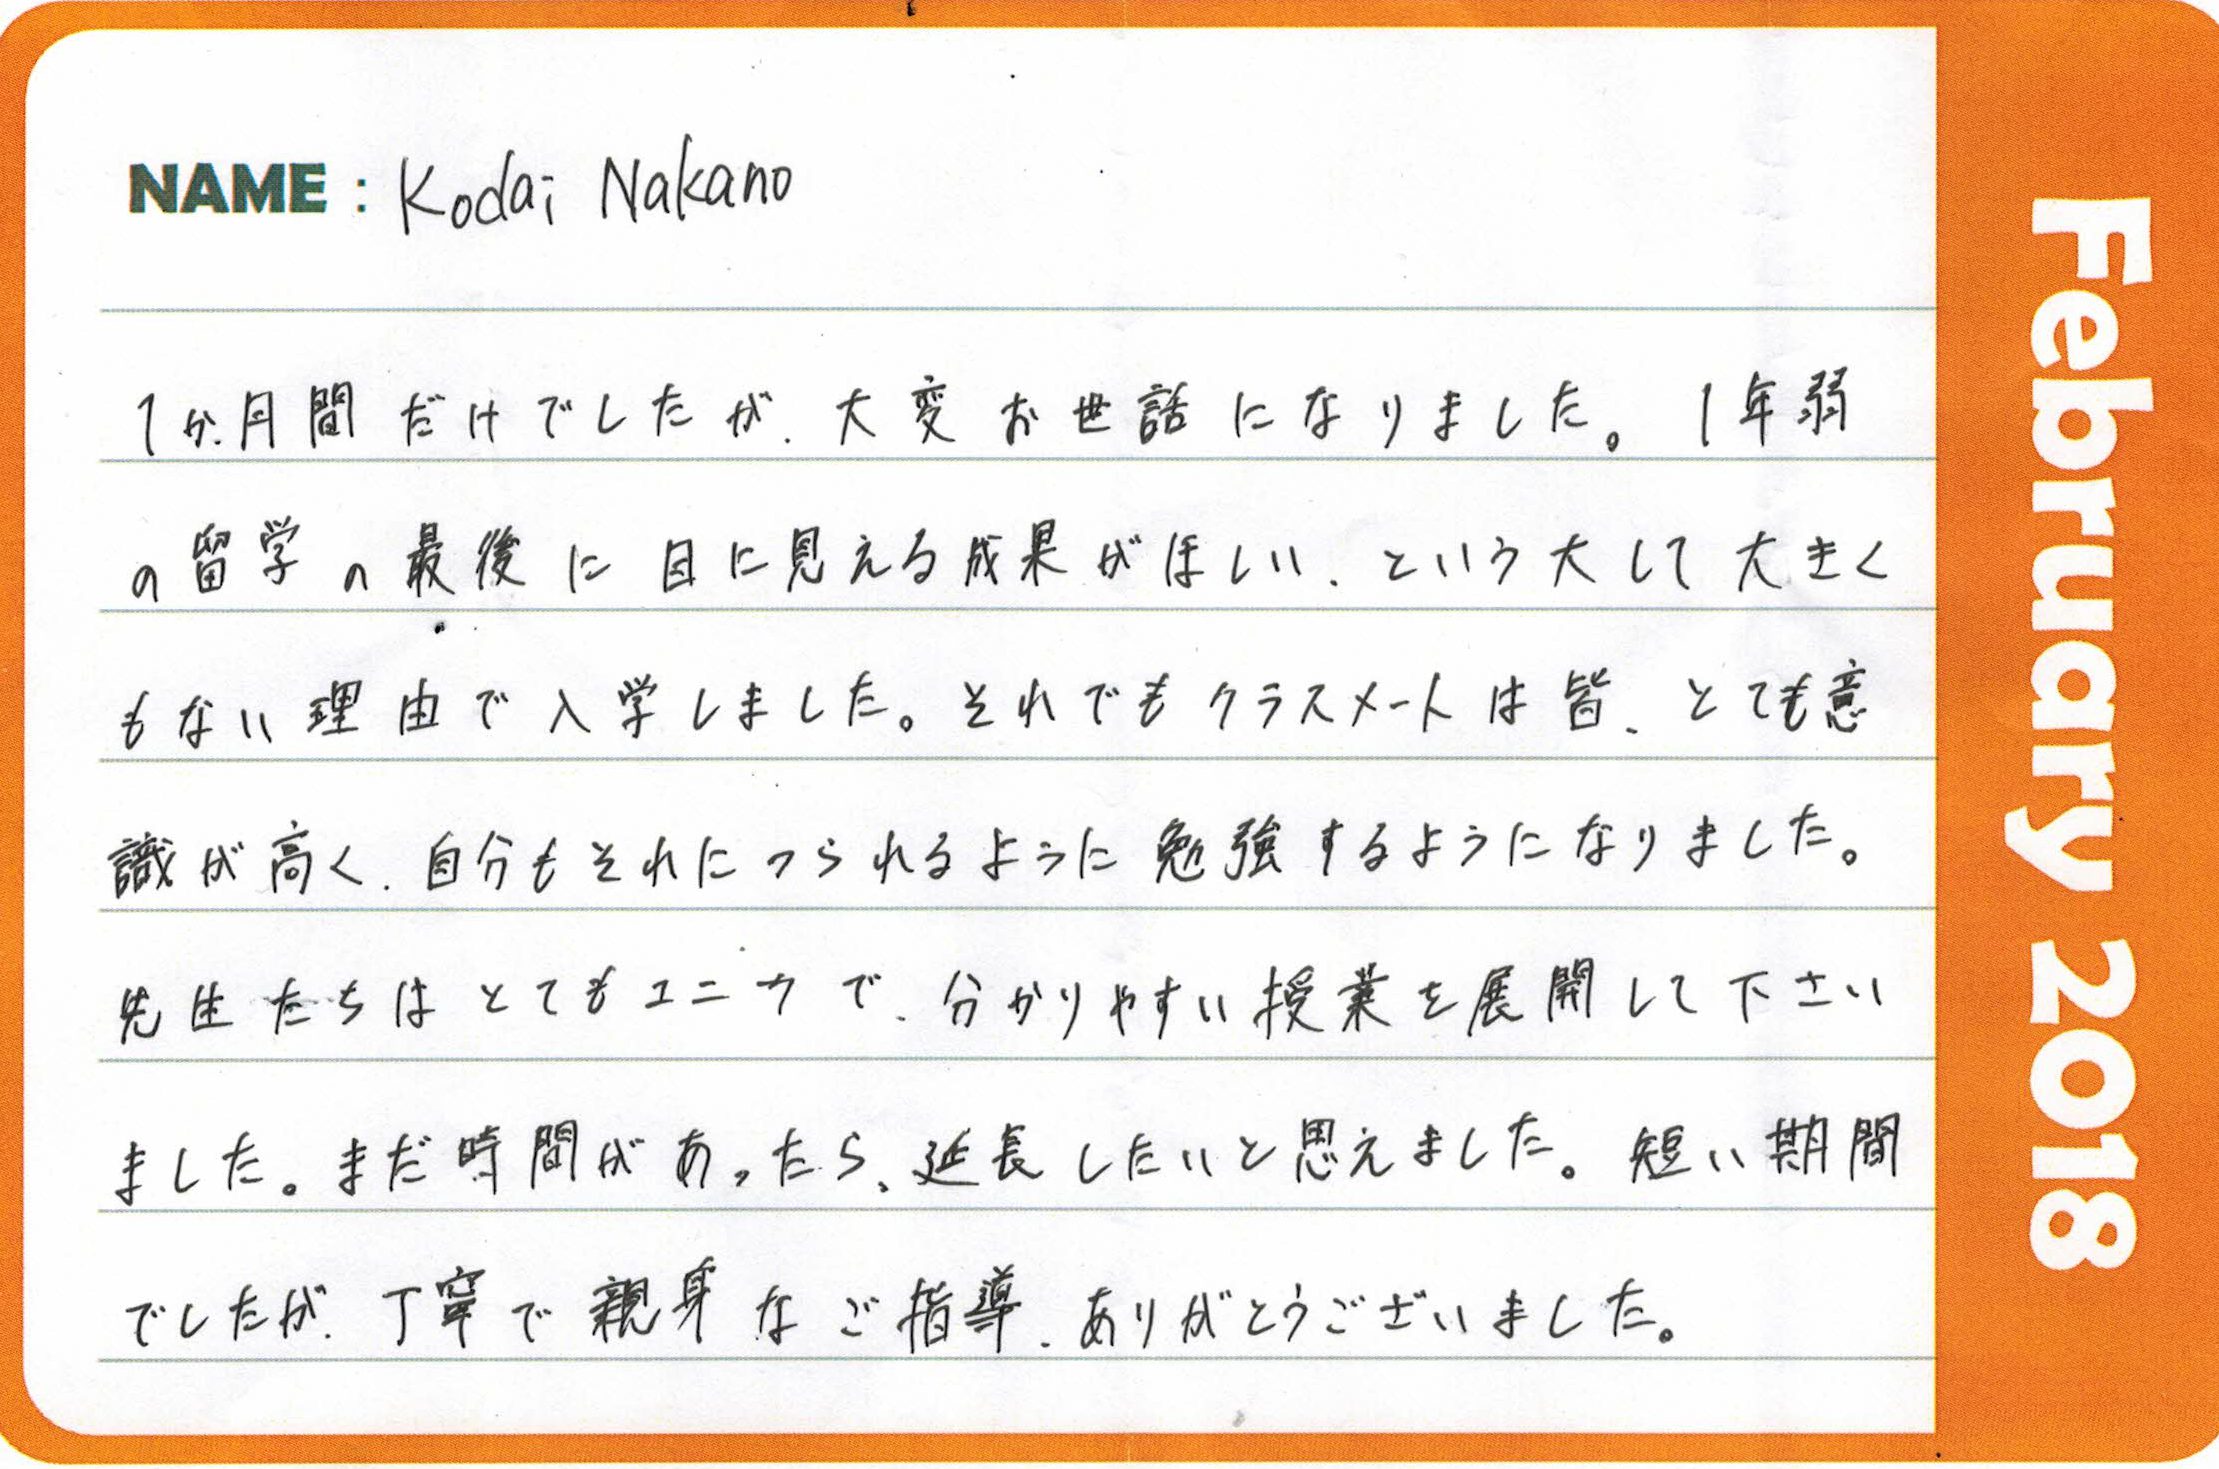 NAME : Kodai Nakano
1か月間だけでしたが、大変お世話になりました。1年弱
の留学の最後に目に見える成果がほしい、という大して大きく
もない理由で入学しました。それでもクラスメートは皆、とても意
識が高く、自分もそれにつられるように勉強するようになりました。
先生たちはとてもユニークで、分かりやすい授業を展開して下さい
ました。まだ時間があったら、延長したいと思えました。短い期間
でしたが、丁寧で親身なご指導、ありがとうございました。
February 2018